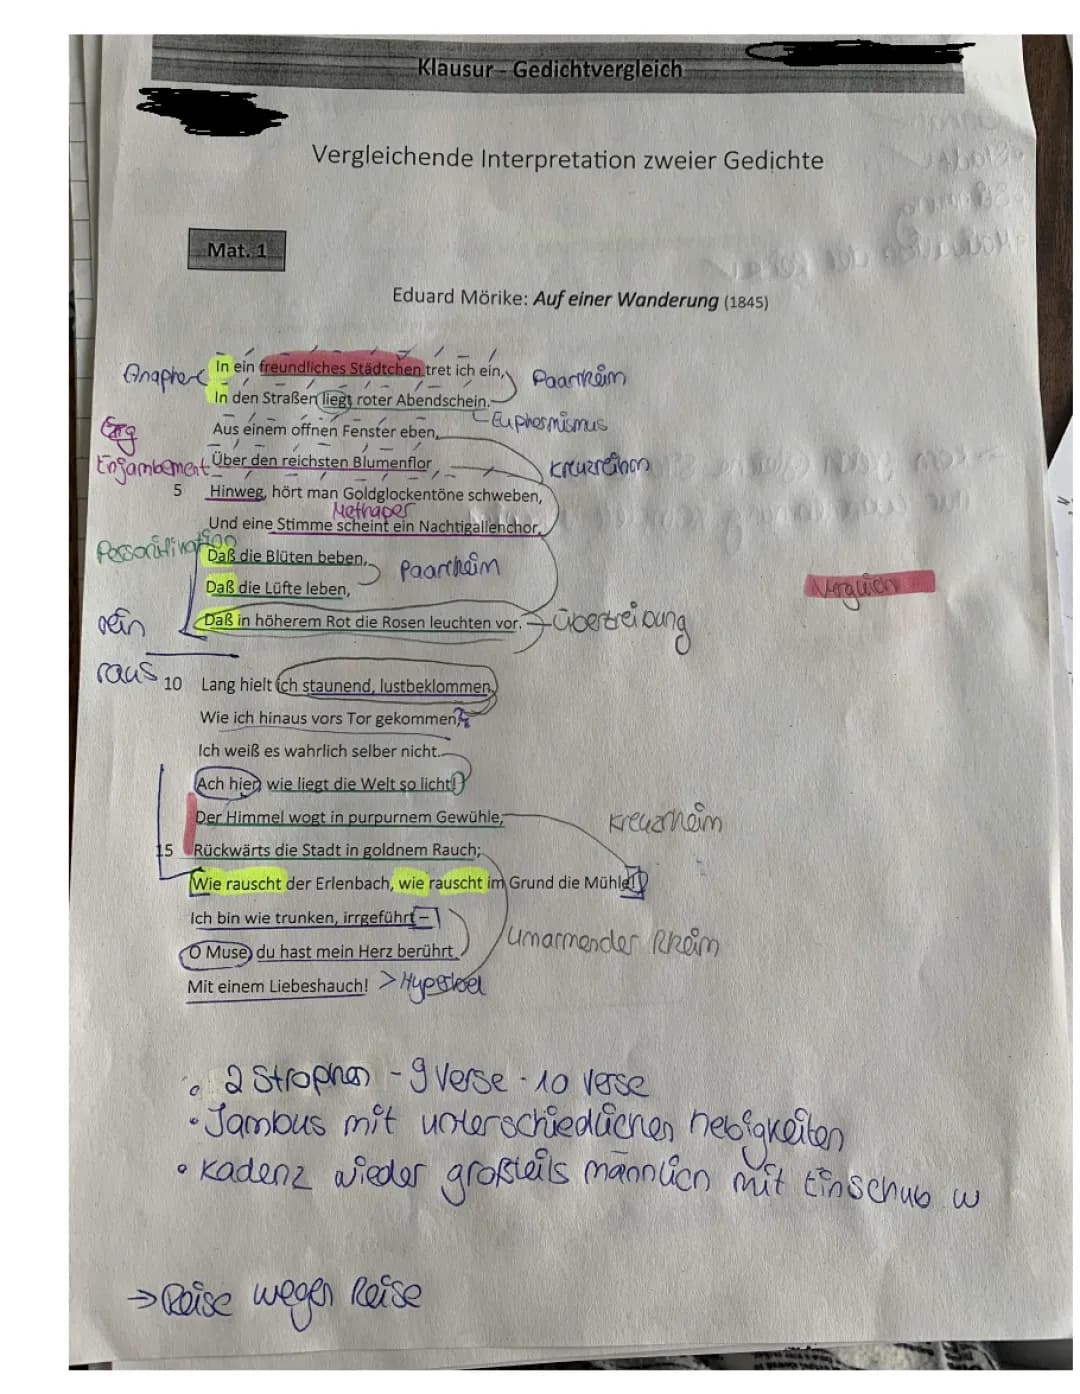 Klausur - Gedichtvergleich
Vergleichende Interpretation zweier Gedichte
Mat. 1
Eduard Mörike: Auf einer Wanderung (1845)
Anapher In ein freundliches Städtchen tret ich ein, Paarrheim
In den Straßen liegt roter Abendschein.
Euphemismus
Aus einem offnen Fenster eben,
Enjambement Über den reichsten Blumenflor Kreuzreihm
5 Hinweg, hört man Goldglockentöne schweben,
Methaper
Und eine Stimme scheint ein Nachtigallenchor,
Personifikation
Daß die Blüten beben, Paarrheim
Daß die Lüfte leben,
rein Daß in höherem Rot die Rosen leuchten vor. Übertreibung
Vergleich
raus
10 Lang hielt ich staunend, lustbeklommen,
Wie ich hinaus vors Tor gekommen,
Ich weiß es wahrlich selber nicht.
Ach hier, wie liegt die Welt so licht!
Der Himmel wogt in purpurnem Gewühle, Kreuzrheim
15 Rückwärts die Stadt in goldnem Rauch;
Wie rauscht der Erlenbach, wie rauscht im Grund die Mühle!
Ich bin wie trunken, irrgeführt –
O Muse, du hast mein Herz berührt Umarmender Rheim
Mit einem Liebeshauch! > Hyperbel
• 2 Strophen - 9 Verse - 10 Verse
• Jambus mit unterschiedlichen hebigkeiten
• Kadenz wieder großteils männlich mit Einschub w
→ Reise wegen Reise